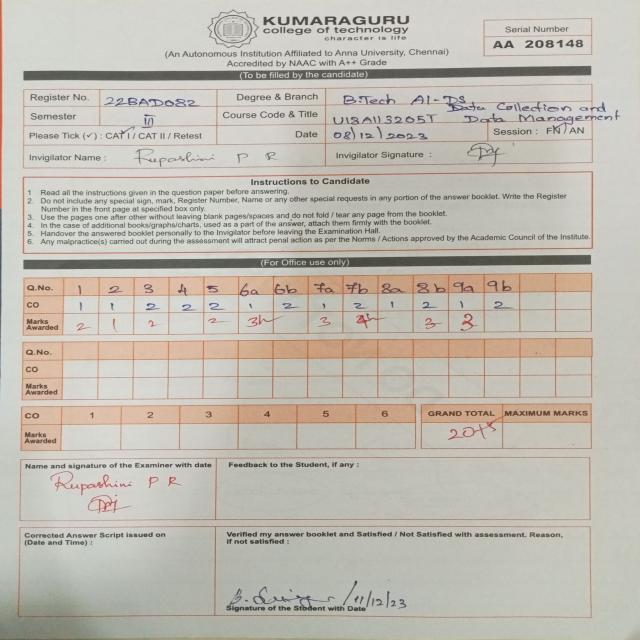 KUMARAGURU
college of technology
character is life
(An Autonomous Institution Affiliated to Anna University, Chennai)
Accredited by NAAC with A++ Grade
Serial Number
AA 208148
(To be filled by the candidate)
Register No. 22BAD082 Degree & Branch B.Tech AI-DS
Semester III Course Code & Title U18AI13205T Data Collection and
Data Management
Please Tick (✓) : CAT I / CAT II / Retest Date 08/12/2023 Session : FN / AN
Invigilator Name : Rupashini P R Invigilator Signature :
Instructions to Candidate
1 Read all the instructions given in the question paper before answering.
2. Do not include any special sign, mark, Register Number, Name or any other special requests in any portion of the answer booklet. Write the Register
Number in the front page at specified box only.
3 Use the pages one after other without leaving blank pages/spaces and do not fold / tear any page from the booklet.
4. In the case of additional books/graphs/charts, used as a part of the answer, attach them firmly with the booklet.
5. Handover the answered booklet personally to the Invigilator before leaving the Examination Hall.
6. Any malpractice(s) carried out during the assessment will attract penal action as per the Norms / Actions approved by the Academic Council of the Institute.
(For Office use only)
Q.No. 1 2 3 4 5 6a 6b 7a 7b 8a 8b 9a 9b
CO 1 1 2 2 2 1 2 1 2 1 2 1 2
Marks Awarded 2 1 2 2 3 3 3
Q.No.
CO
Marks Awarded
CO 1 2 3 4 5 6 GRAND TOTAL MAXIMUM MARKS
Marks Awarded
Name and signature of the Examiner with date
Rupashini P R
Feedback to the Student, if any :
Corrected Answer Script issued on
(Date and Time) :
Verified my answer booklet and Satisfied / Not Satisfied with assessment. Reason,
if not satisfied :
11/12/23
Signature of the Student with Date